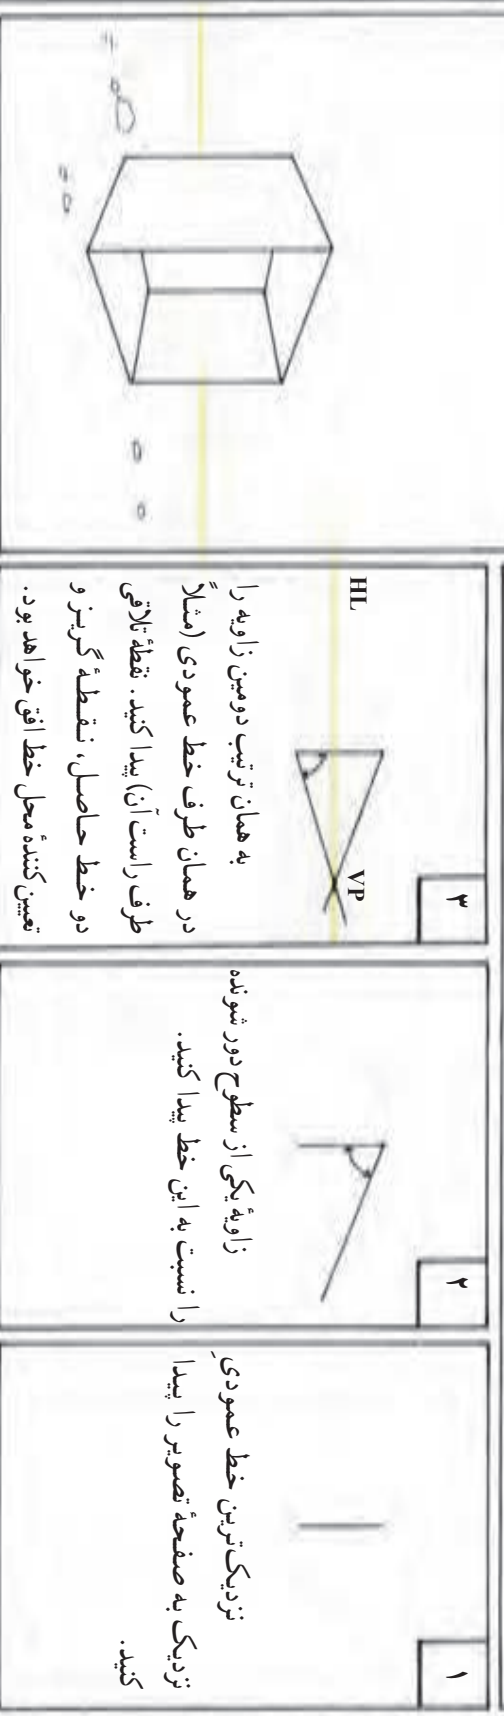 ۱
نزدیک‌ترین خط عمودیِ
نزدیک به صفحهٔ تصویر را پیدا
کنید.
۲
زاویهٔ یکی از سطوح دور شونده
را نسبت به این خط پیدا کنید.
۳
HL
VP
به همان ترتیب دومین زاویه را
در همان طرف خط عمودی (مثلاً
طرف راست آن) پیدا کنید. نقطهٔ تلاقی
دو خط حاصل، نقطهٔ گریز و
تعیین‌کنندهٔ محل خط افق خواهد بود.